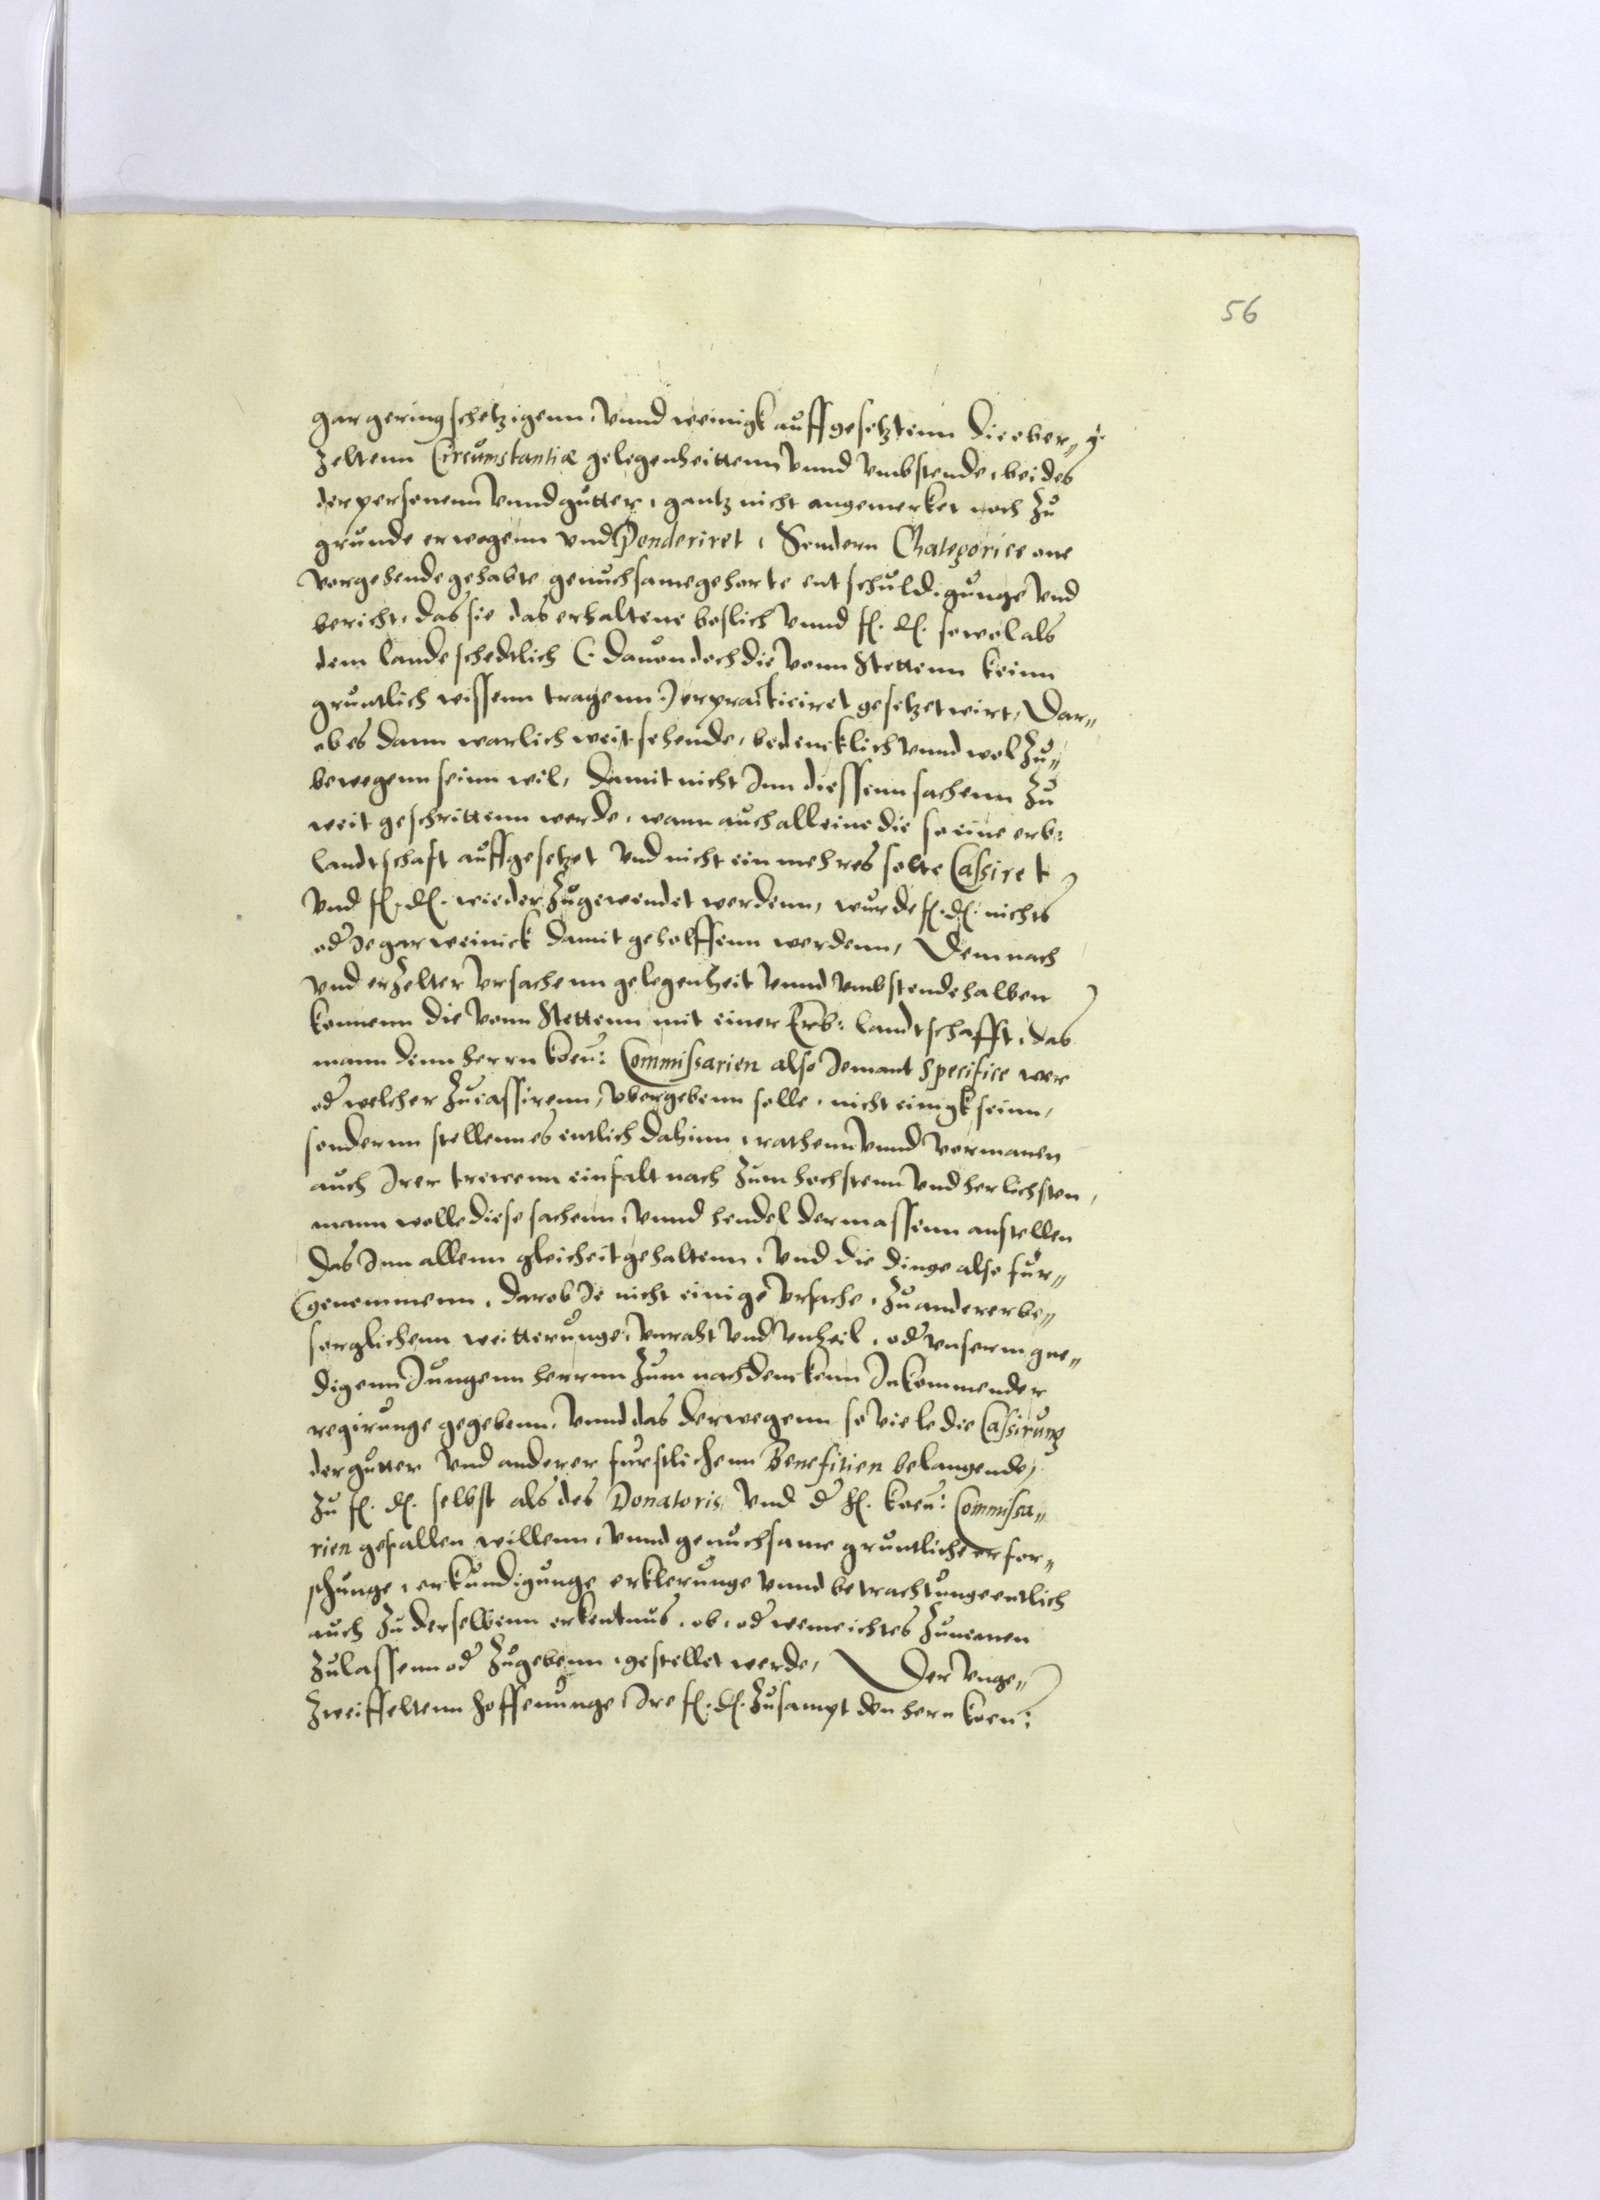 56
gar geringschetzigenn, vnnd weinigk auffgesetztenn die ober„
zeltenn Circumstantiæ gelegenheittenn vnnd vmbstende, beides
der personenn vnnd gutter, gantz nicht angemerket noch zu
grunde erwogenn vnd Ponderiret, Sondern Chategorice one
vorgehende gehabte genuchsame gehorte entschuldigunge vnd
bericht, das sie das erhaltene boslich vnnd f. d. sowol als
dem lande schedtlich (: dauon doch die vonn Stettenn keinn
gruntlich wissenn tragenn :) erpracticiret gesetzet wirt, Dar„
ob es dann warlich weit sehende, bedencklich vnnd wol zu„
bewegenn seinn wil, damit nicht Inn diessenn sachenn zu
weit geschrittenn werde, wann auch alleine die so eine erb:
landtschaft auffgesetzet vnd nicht ein mehres solte Cassiret
vnd f. d. wieder zugewendet werdenn, wurde f. d. nichts
od Je gar weinick damit geholffenn werdenn, Demnach
vnd erzelter vrsachenn gelegenheit vnnd vmbstende halben
konnenn die vonn Stettenn mit einer Erb: landtschafft, das
mann denn herrn koen: Commissarien also Jemant Specifice wer
od welcher zu cassirenn, vbergebenn solle, nicht einigk seinn,
sondernn stellenn es entlich dahinn, rathenn vnnd vormanen
auch Irer trewenn einfalt nach zum hochstenn vnd herlichsten,
mann wolle diese sachenn, vnnd hendel dermassenn anstellen
das Inn allenn gleicheit gehaltenn, vnd die dinge also fur„
genommenn, darob Je nicht einige vrsache, zu anderer be„
sorglichenn weitterunge, vnraht vnd vnheil, od vnserm gne„
digenn Jungenn herrnn zum nachdenckenn In kommender
regirunge gegebenn, vnnd das derwegenn so viele die Cassirung
der gutter vnd anderer furstlichenn Benefitien belangende,
zu f. d. selbst als des Donatoris vnd d H. koen: Commissa„
rien gefallen willenn, vnnd genuchsame gruntliche erfor„
schunge, erkundigunge erklerunge vnnd betrachtunge entlich
auch zu derselbenn erkentnus, ob, od weme ichtes zunemen
zulassenn od zugebenn, gestellet werde, Der vnge„
zweiffeltenn hoffenunge Ire f. d. zusampt den hern koen: